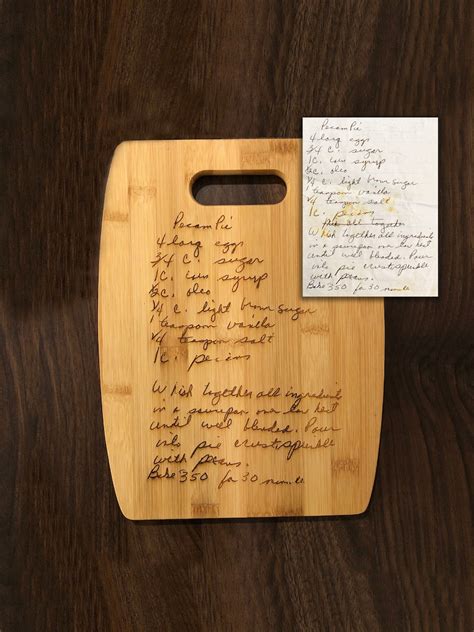 Pecam Pie
4 larg eggs
3/4 C. sugar
1 C. corn syrup
1/2 C. oleo
1/4 C. light brown sugar
1 teaspoon vanilla
1/4 teaspoon salt
1 C. pecans
Whish together all ingredients
in a saucepan over low heat
until well blended. Pour
into pie crust, sprinkle
with pecans.
Bake 350 for 30 minute
Pecam Pie
4 larg eggs
3/4 C. sugar
1 C. corn syrup
1/2 C. oleo
1/4 C. light brown sugar
1 teaspoon vanilla
1/4 teaspoon salt
1 C. pecans
all together
Whish together all ingredients
in a saucepan over low heat
until well blended. Pour
into pie crust, sprinkle
with pecans.
Bake 350 for 30 minute